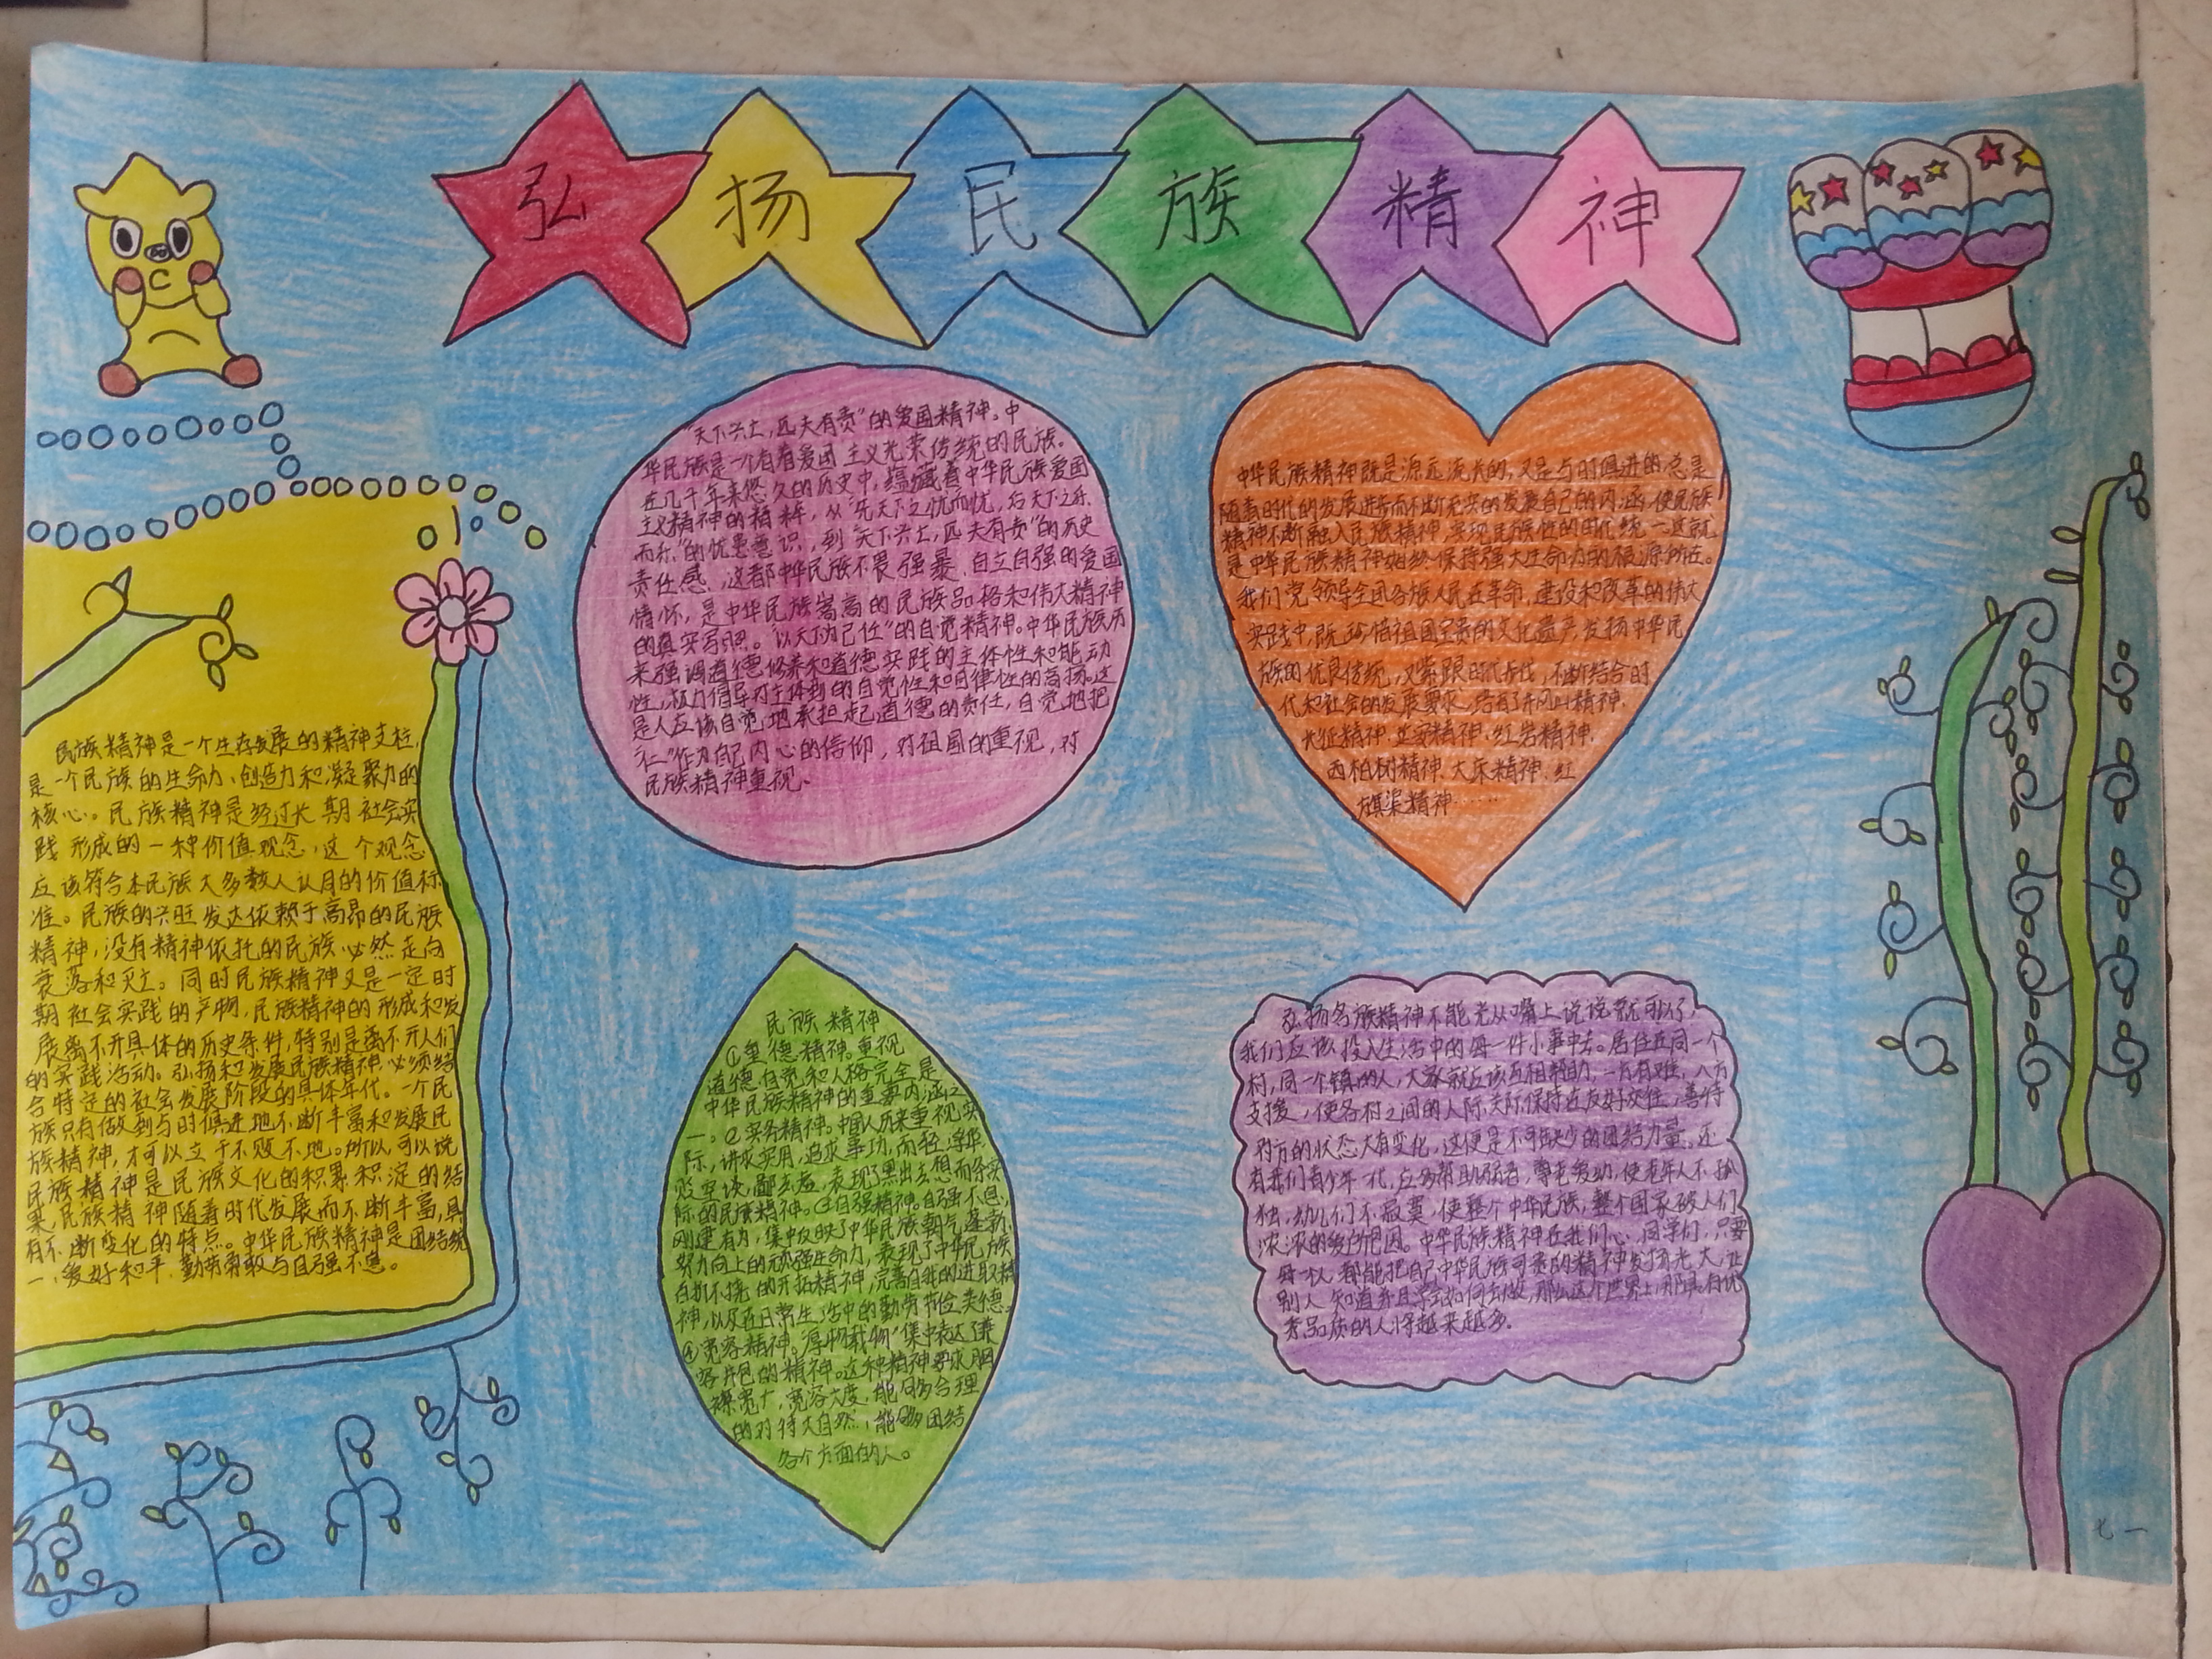 弘扬民族精神
民族精神是一个生存发展的精神支柱,
是一个民族的生命力、创造力和凝聚力的
核心。民族精神是经过长期社会实
践形成的一种价值观念,这个观念
应该符合本民族大多数人认同的价值标
准。民族的兴旺发达依赖于高昂的民族
精神,没有精神依托的民族必然走向
衰落和灭亡。同时民族精神又是一定时
期社会实践的产物,民族精神的形成和发
展离不开具体的历史条件,特别是离不开人们
的实践活动。弘扬和发展民族精神,必须结
合特定的社会发展阶段的具体年代。一个民
族只有做到与时俱进地不断丰富和发展民
族精神,才可以立于不败不地。所以,可以说
民族精神是民族文化的积累积淀的结
果,民族精神随着时代发展而不断丰富,具
有不断变化的特点。中华民族精神是团结统
一、爱好和平、勤劳勇敢与自强不息。
“天下兴亡,匹夫有责”的爱国精神。中
华民族是一个有着爱国主义光荣传统的民族。
在几千年来悠久的历史中,蕴藏着中华民族爱国
主义精神的精粹,从“先天下之忧而忧,后天下之乐
而乐”的忧患意识,到“天下兴亡,匹夫有责”的历史
责任感,这都中华民族不畏强暴、自立自强的爱国
情怀,是中华民族崇高的民族品格和伟大精神
的真实写照。“以天下为己任”的自觉精神。中华民族历
来强调道德修养和道德实践的主体性和能动
性,极力倡导对主体的自觉性和自律性的高扬。这
是人应该自觉地承担起道德的责任,自觉地把
“仁”作为自己内心的信仰,对祖国的重视,对
民族精神重视。
中华民族精神既是源远流长的,又是与时俱进的,总是
随着时代的发展进步而不断充实的发展自己的内涵,使民族
精神不断融入民族精神,实现民族性的时代统一。这就
是中华民族精神始终保持强大生命力的根源所在。
我们党领导全国各族人民在革命、建设和改革的伟大
实践中,既珍惜祖国宝贵的文化遗产,发扬中华民
族的优良传统,又紧跟时代步伐,不断结合时
代和社会的发展要求,培育了井冈山精神、
长征精神、延安精神、红岩精神、
西柏树精神、大庆精神、红
旗渠精神……
民族精神
①重德精神。重视
道德自觉和人格完全,是
中华民族精神的重要内涵之
一。②实务精神。中国人历来重视实
际,讲求实用,追求事功,而轻浮华,
贬空谈,鄙玄虚,表现了黑出去想而务实
际的民族精神。③自强精神。自强不息,
刚建有为,集中反映了中华民族朝气蓬勃、
努力向上的顽强生命力,表现了中华民族
百折不挠的开拓精神,完善自我的进取精
神,以及在日常生活中的勤劳节俭美德。
④宽容精神。“厚物载物”集中表达了兼
容并包的精神。这种精神要求胸
襟宽广,宽容大度,能够合理
的对待大自然,能够团结
各个方面的人。
弘扬名族精神不能光从嘴上说说就可以了,
我们应该投入生活中的每一件小事中去。居住在同一个
村,同一个镇的人,大家就应该互相帮助,一方有难,八方
支援,使各村之间的人际关际保持在友好交往,善待
对方的状态大有变化,这便是不可缺少的团结力量。还
有我们青少年一代,应多帮助弱者,尊老爱幼,使老年人不孤
独,幼儿们不寂寞,使整个中华民族,整个国家被人们
浓浓的爱所包围。中华民族精神在我们心,同学们,只要
每一人都能把自己中华民族可贵的精神发扬光大,让
别人知道并且学会如何去做,那么这个世界上用具有优
秀品质的人将越来越多。
七一